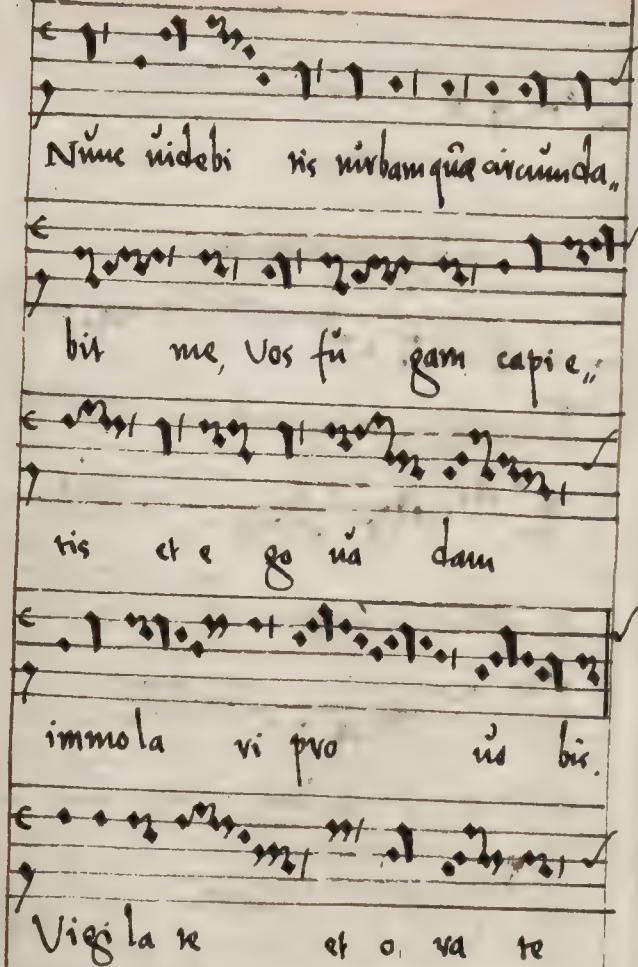 Nunc uidebi tis turbam quæ circunda„
bit me, Vos fu gam capi e„
tis et e go ua dam
immola ri pro uo bis.
Vigi la te et o ra te